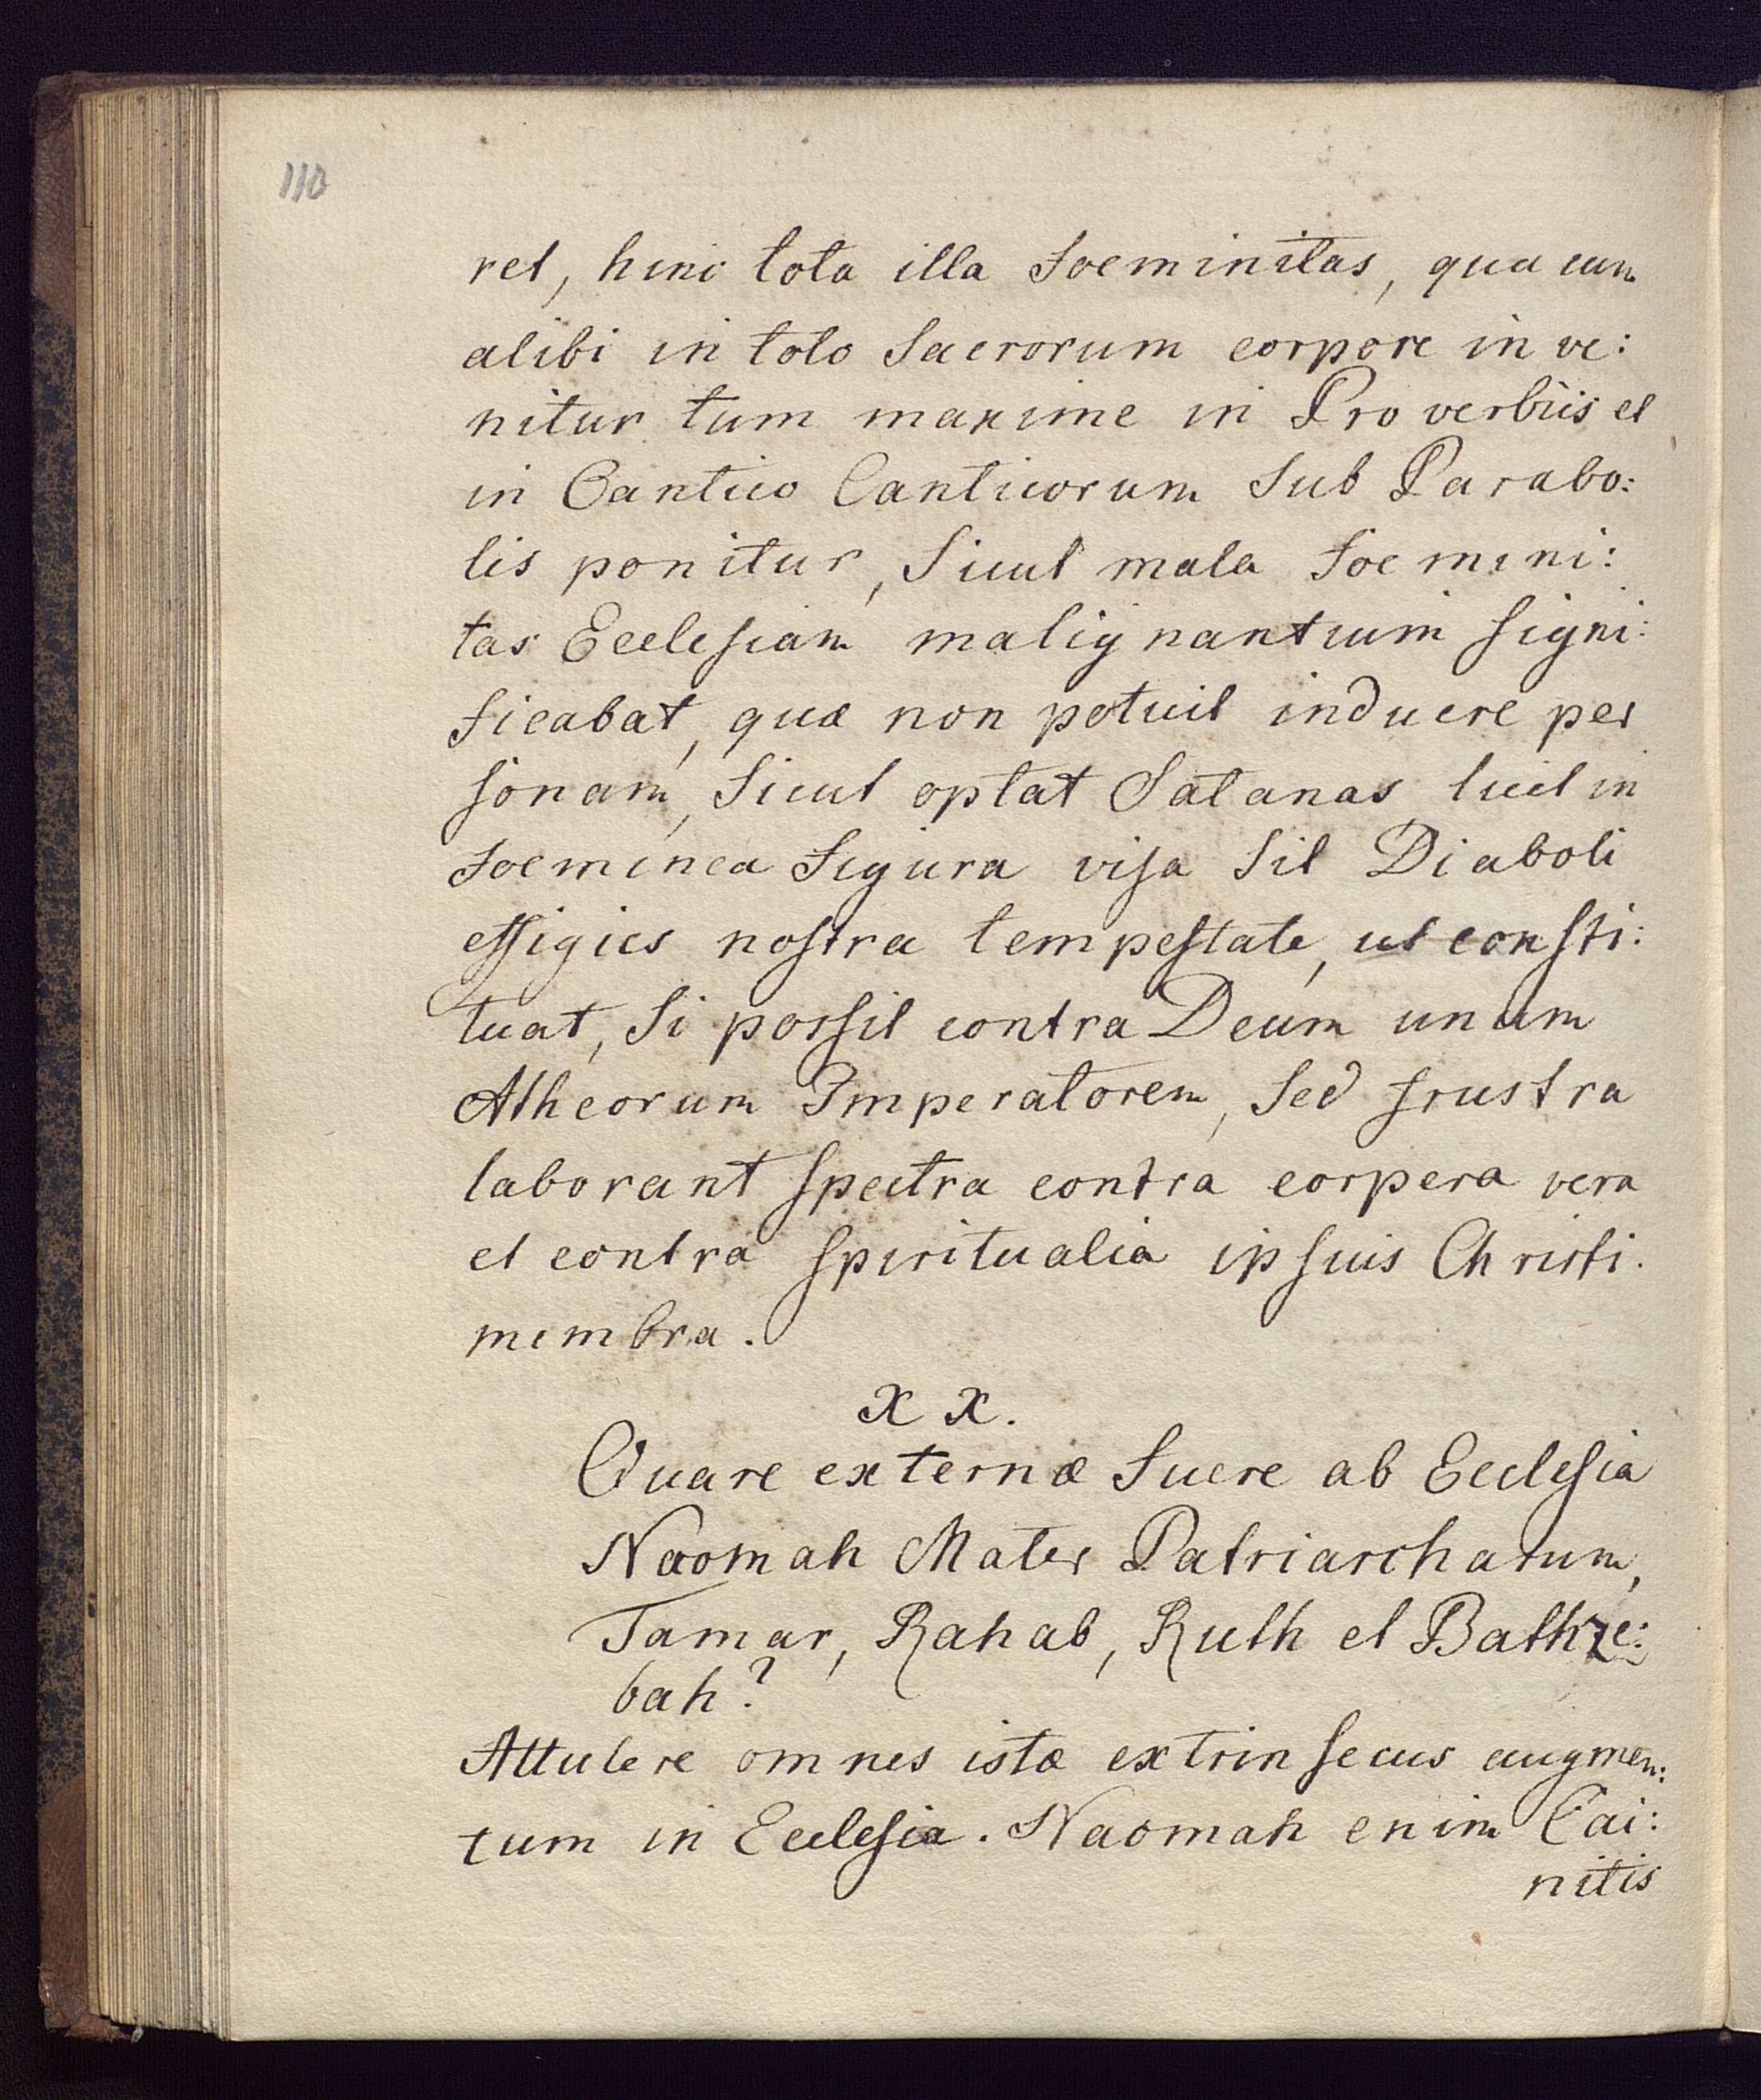 110
ret, hinc tota illa foeminitas, qua cum
alibi in toto Sacrorum corpore in ve:
nitur tum maxime in Proverbiis et
in Cantico Canticorum sub Parabo:
lis ponitur, Sicut mala foemini:
tas Ecclesiam malignantium signi:
ficabat, quæ non potuit induere per
sonam, Sicut optat Satanas licet in
foeminea figura visa sit Diaboli
effigies nostra tempestate, ut consti:
tuat, Si possit contra Deum unum
Atheorum Imperatorem, Sed frustra
laborant spectra contra corpera vera
et contra spiritualia ipsuis Christi.
membra.
XX.
Quare externæ fuere ab Ecclesia
Naomah Mater Patriarcharum,
Tamar, Rahab, Ruth et Bathze:
bah?
Attulere omnes istæ extrinsecus augmen:
tum in Ecclesia. Naomah enim Cai:
nitis